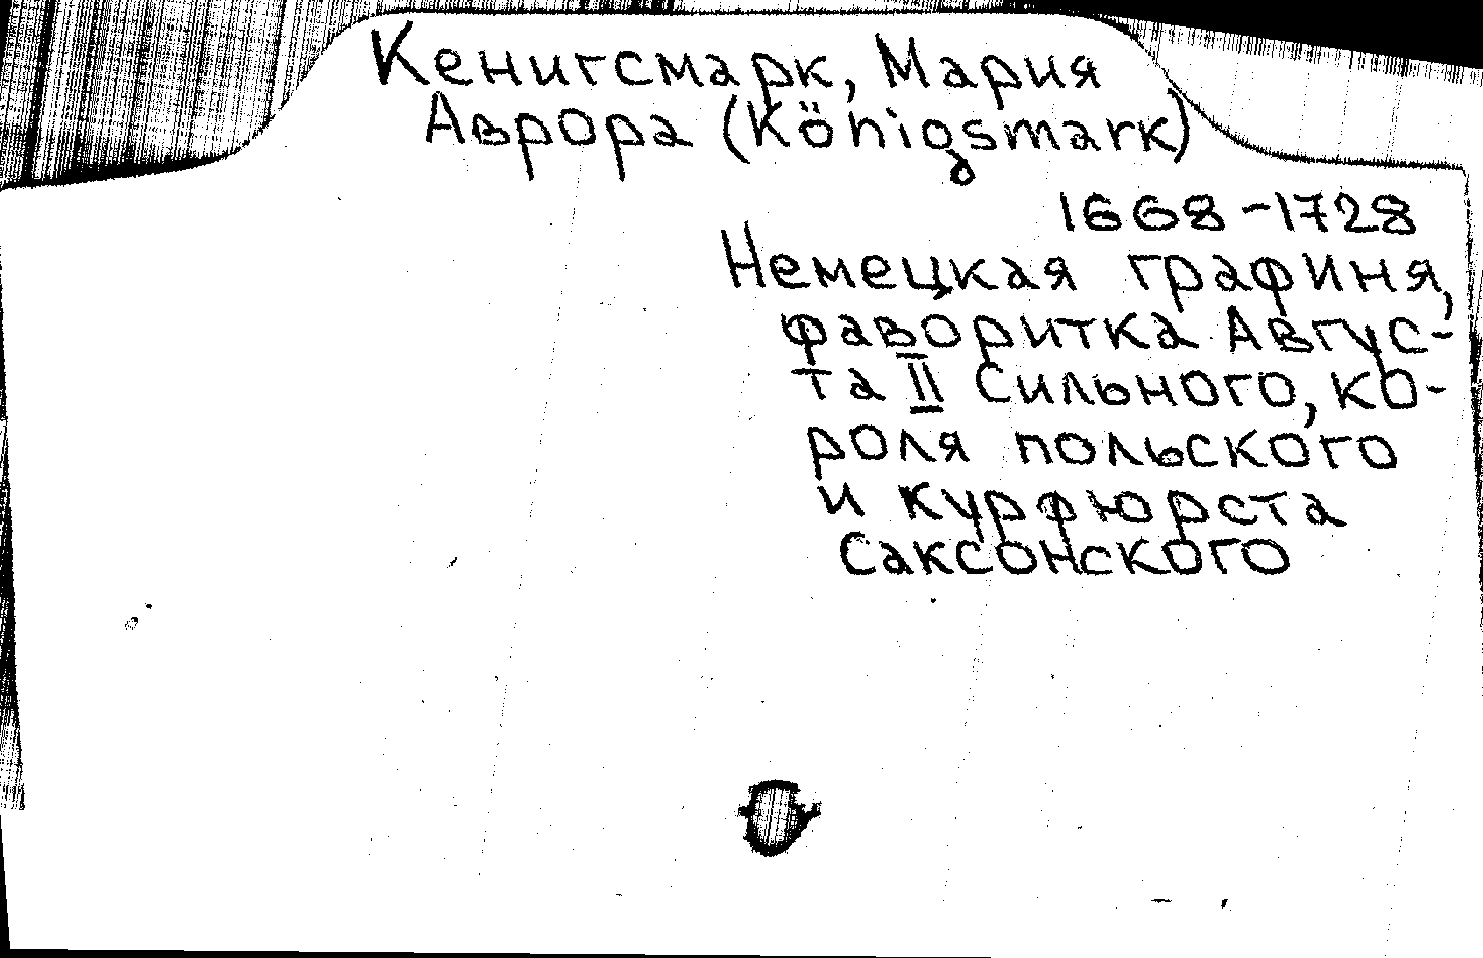 Кенигсмарк, Мария
Аврора (Königsmark)
1668-1728
Немецкая графиня,
фаворитка Авгус-
та II Сильного, ко-
роля польского
и курфюрста
Саксонского